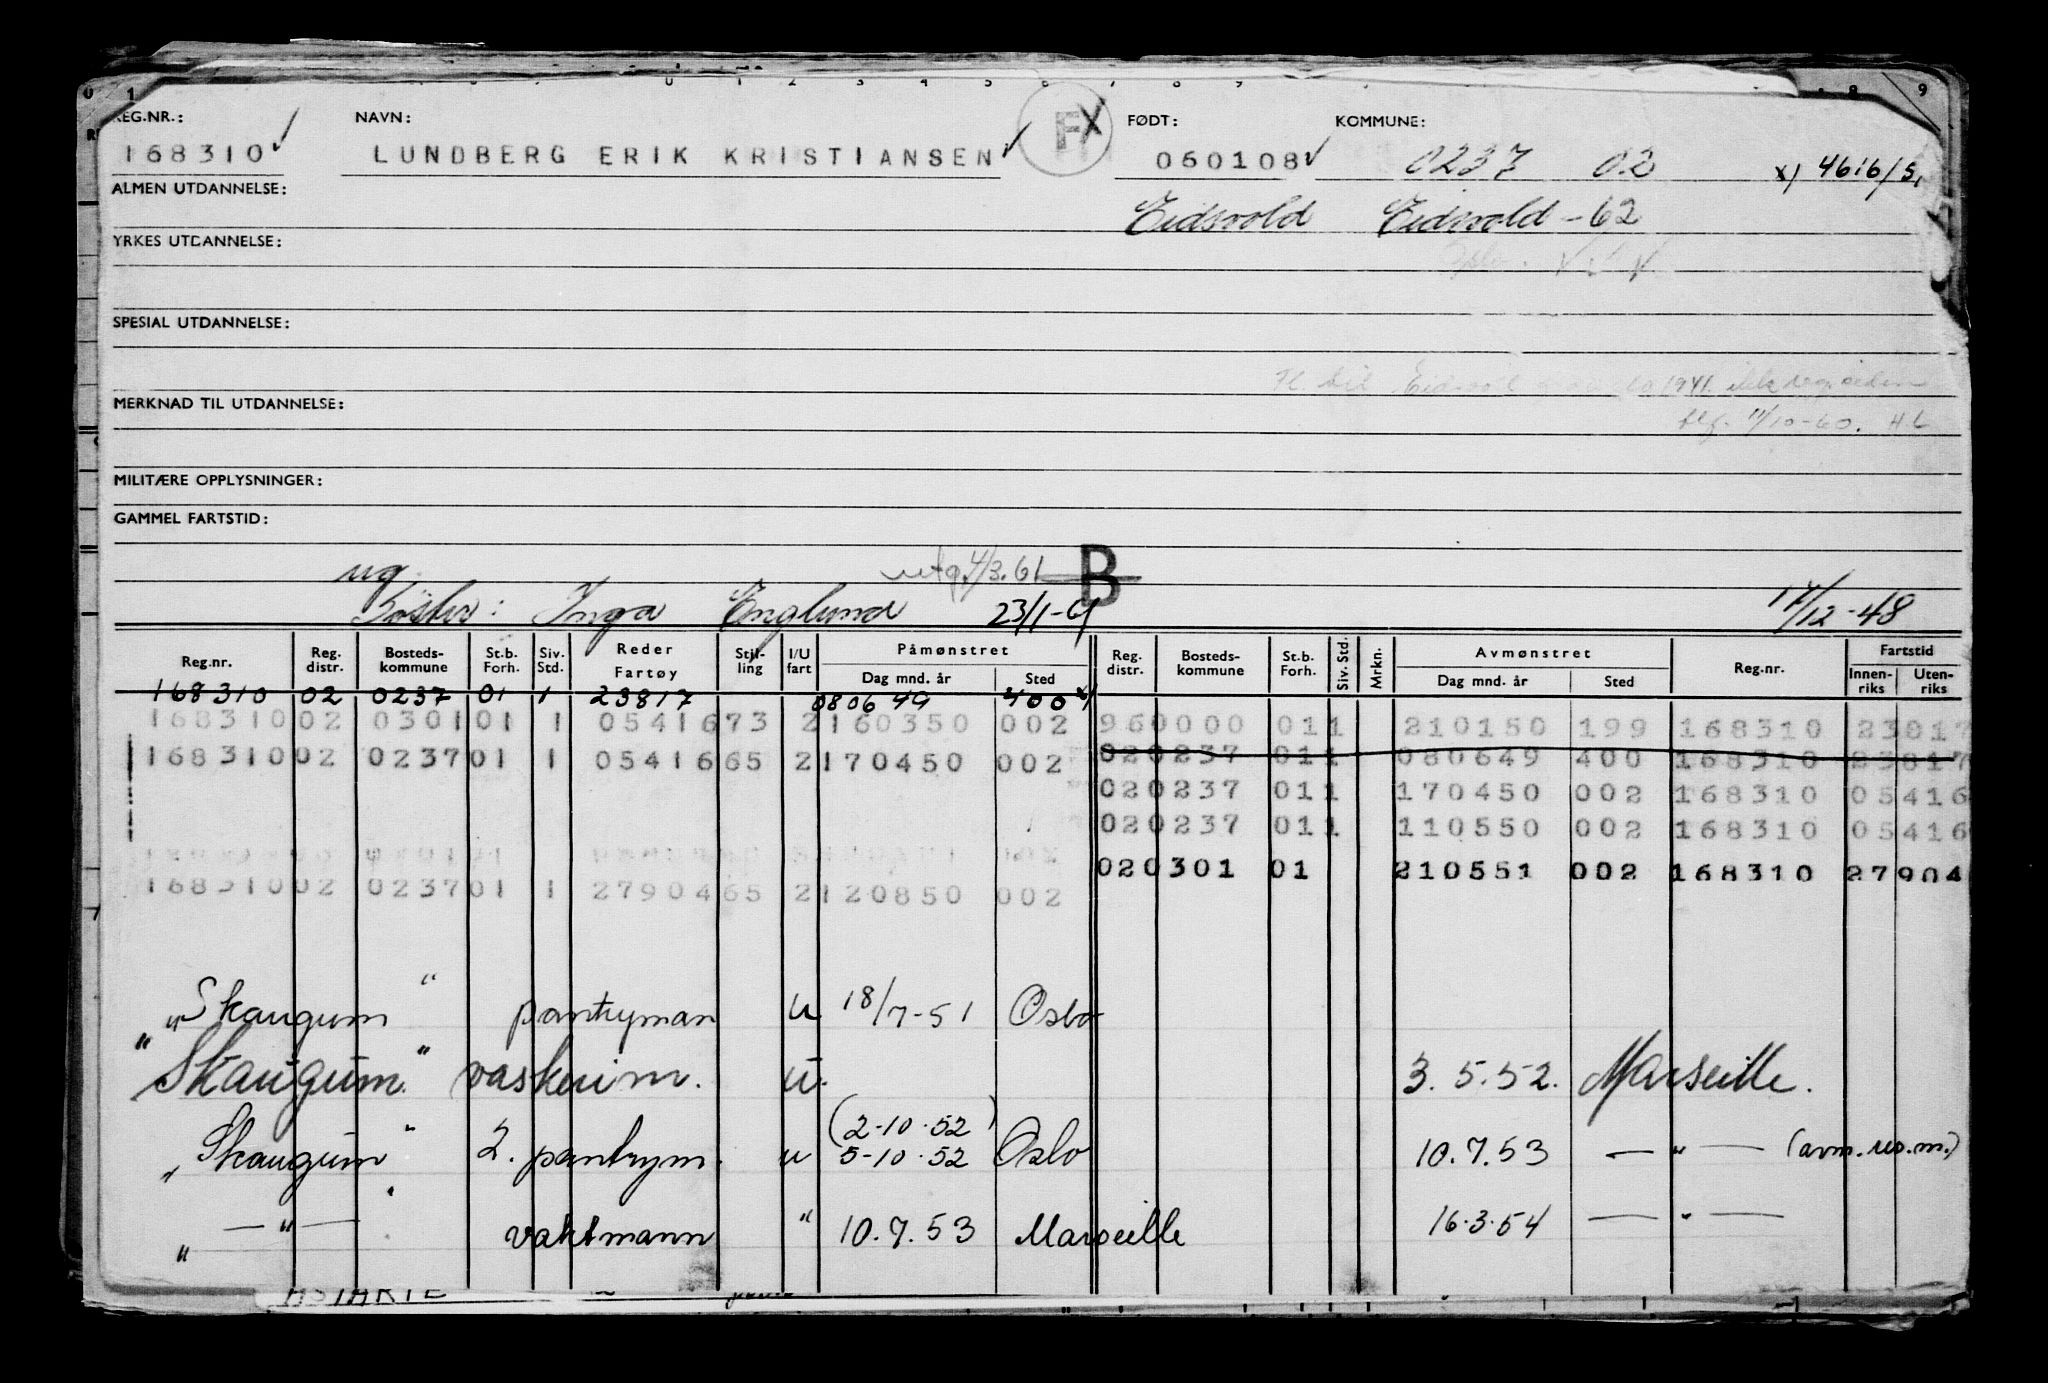 REG.NR.: NAVN: FX FØDT: KOMMUNE:
168310 LUNDBERG ERIK KRISTIANSEN 060108 0237 02 x) 4616/5,
ALMEN UTDANNELSE: Eidsvold Eidsvold - 62
YRKES UTDANNELSE:
SPESIAL UTDANNELSE:
MERKNAD TIL UTDANNELSE:
tlf. 11/10-60. H.L
MILITÆRE OPPLYSNINGER:
GAMMEL FARTSTID:
ug utg. 4/3.61 B
Søster: Inga Englund 23/1-61 14/12-48
Reg.nr. Reg. distr. Bosteds- kommune St.b. Forh. Siv. Std. Reder Fartøy Stil- ling I/U fart Påmønstret Dag mnd. år Sted Reg. distr. Bosteds- kommune St.b. Forh. Siv. Std. Mrkn. Avmønstret Dag mnd. år Sted Reg.nr. Fartstid Innen- riks Uten- riks
168310 02 0237 01 1 23817 080649 400 x)
168310 02 0301 01 1 05416 73 2 160350 002 96 0000 01 1 210150 199 168310 23817
168310 02 0237 01 1 05416 65 2 170450 002 02 0237 01 1 080649 400 168310 23817
02 0237 01 1 170450 002 168310 05416
02 0237 01 1 110550 002 168310 05416
02 0301 01 210551 002 168310 27904
168310 02 0237 01 1 27904 65 2 120850 002
"Skaugum" pantryman u 18/7-51 Oslo
"Skaugum." vaskerim. u. 3.5.52. Marseille.
"Skaugum" 2. pantrym. u (2-10-52) 5-10-52 Oslo 10.7.53 — " — (avm. us. m.)
" — " — " vaktmann " 10.7.53 Marseille 16.3.54 — " —
ASTARTE